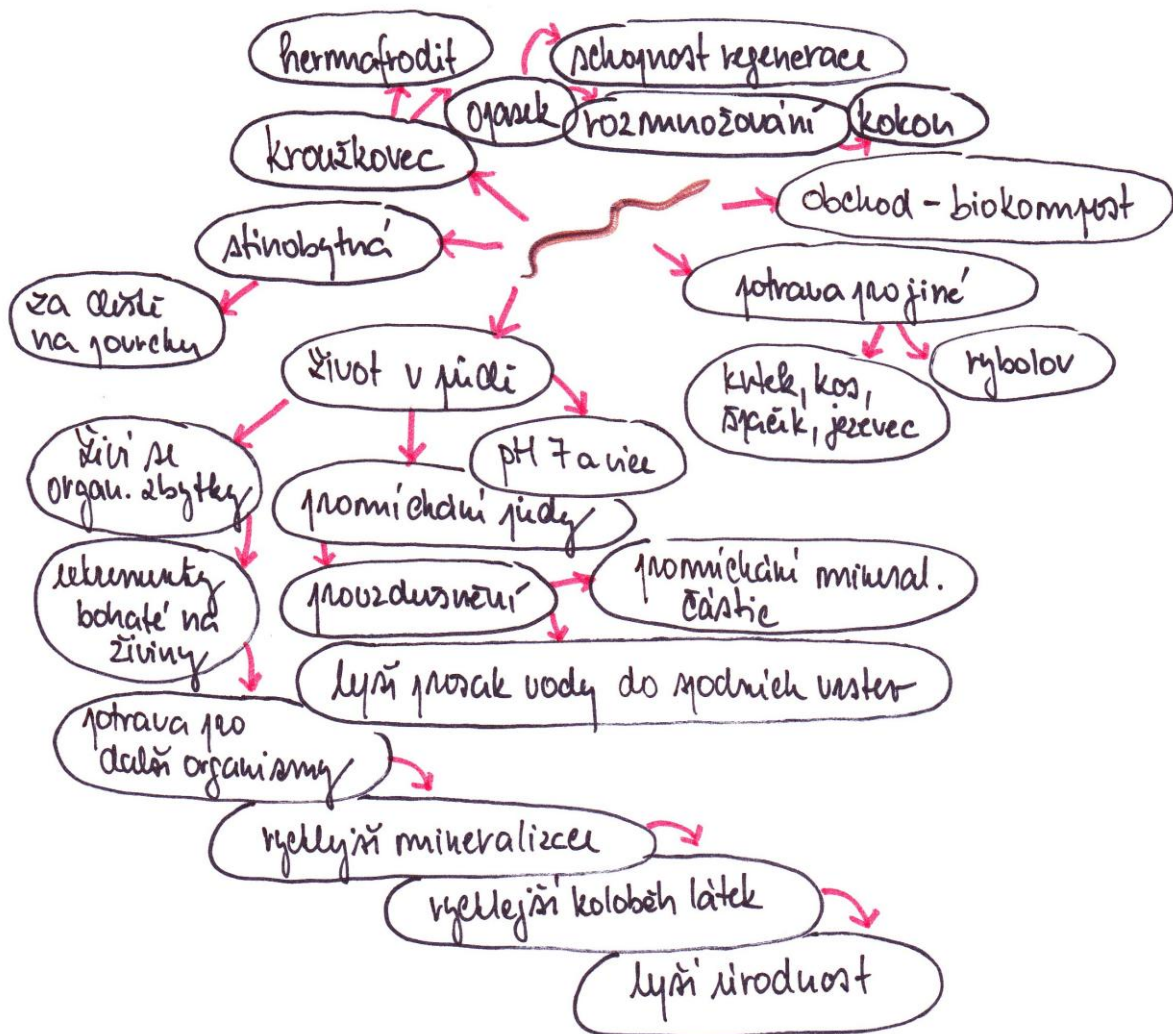 hermafrodit
schopnost regenerace
opasek
rozmnožování
kokon
kroužkovec
obchod - biokompost
stínobytná
potrava pro jiné
za deště
na povrchu
život v půdě
rybolov
krtek, kos,
špaček, jezevec
živí se
organ. zbytky
pH 7 a více
promíchání půdy
exkrementy
bohaté na
živiny
provzdušnění
promíchání minerál.
částic
lepší prosak vody do spodních vrstev
potrava pro
další organismy
rychlejší mineralizace
rychlejší koloběh látek
lepší úrodnost